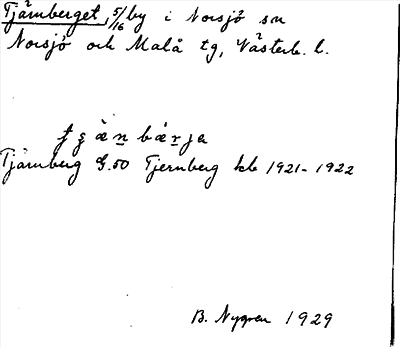 Tjärnberget, 5/16 by i Norsjö sn
Norsjö och Malå tg, Västerb. l.
Tjärnberg G.50 Tjernberg kb 1921-1922
B. Nygren 1929